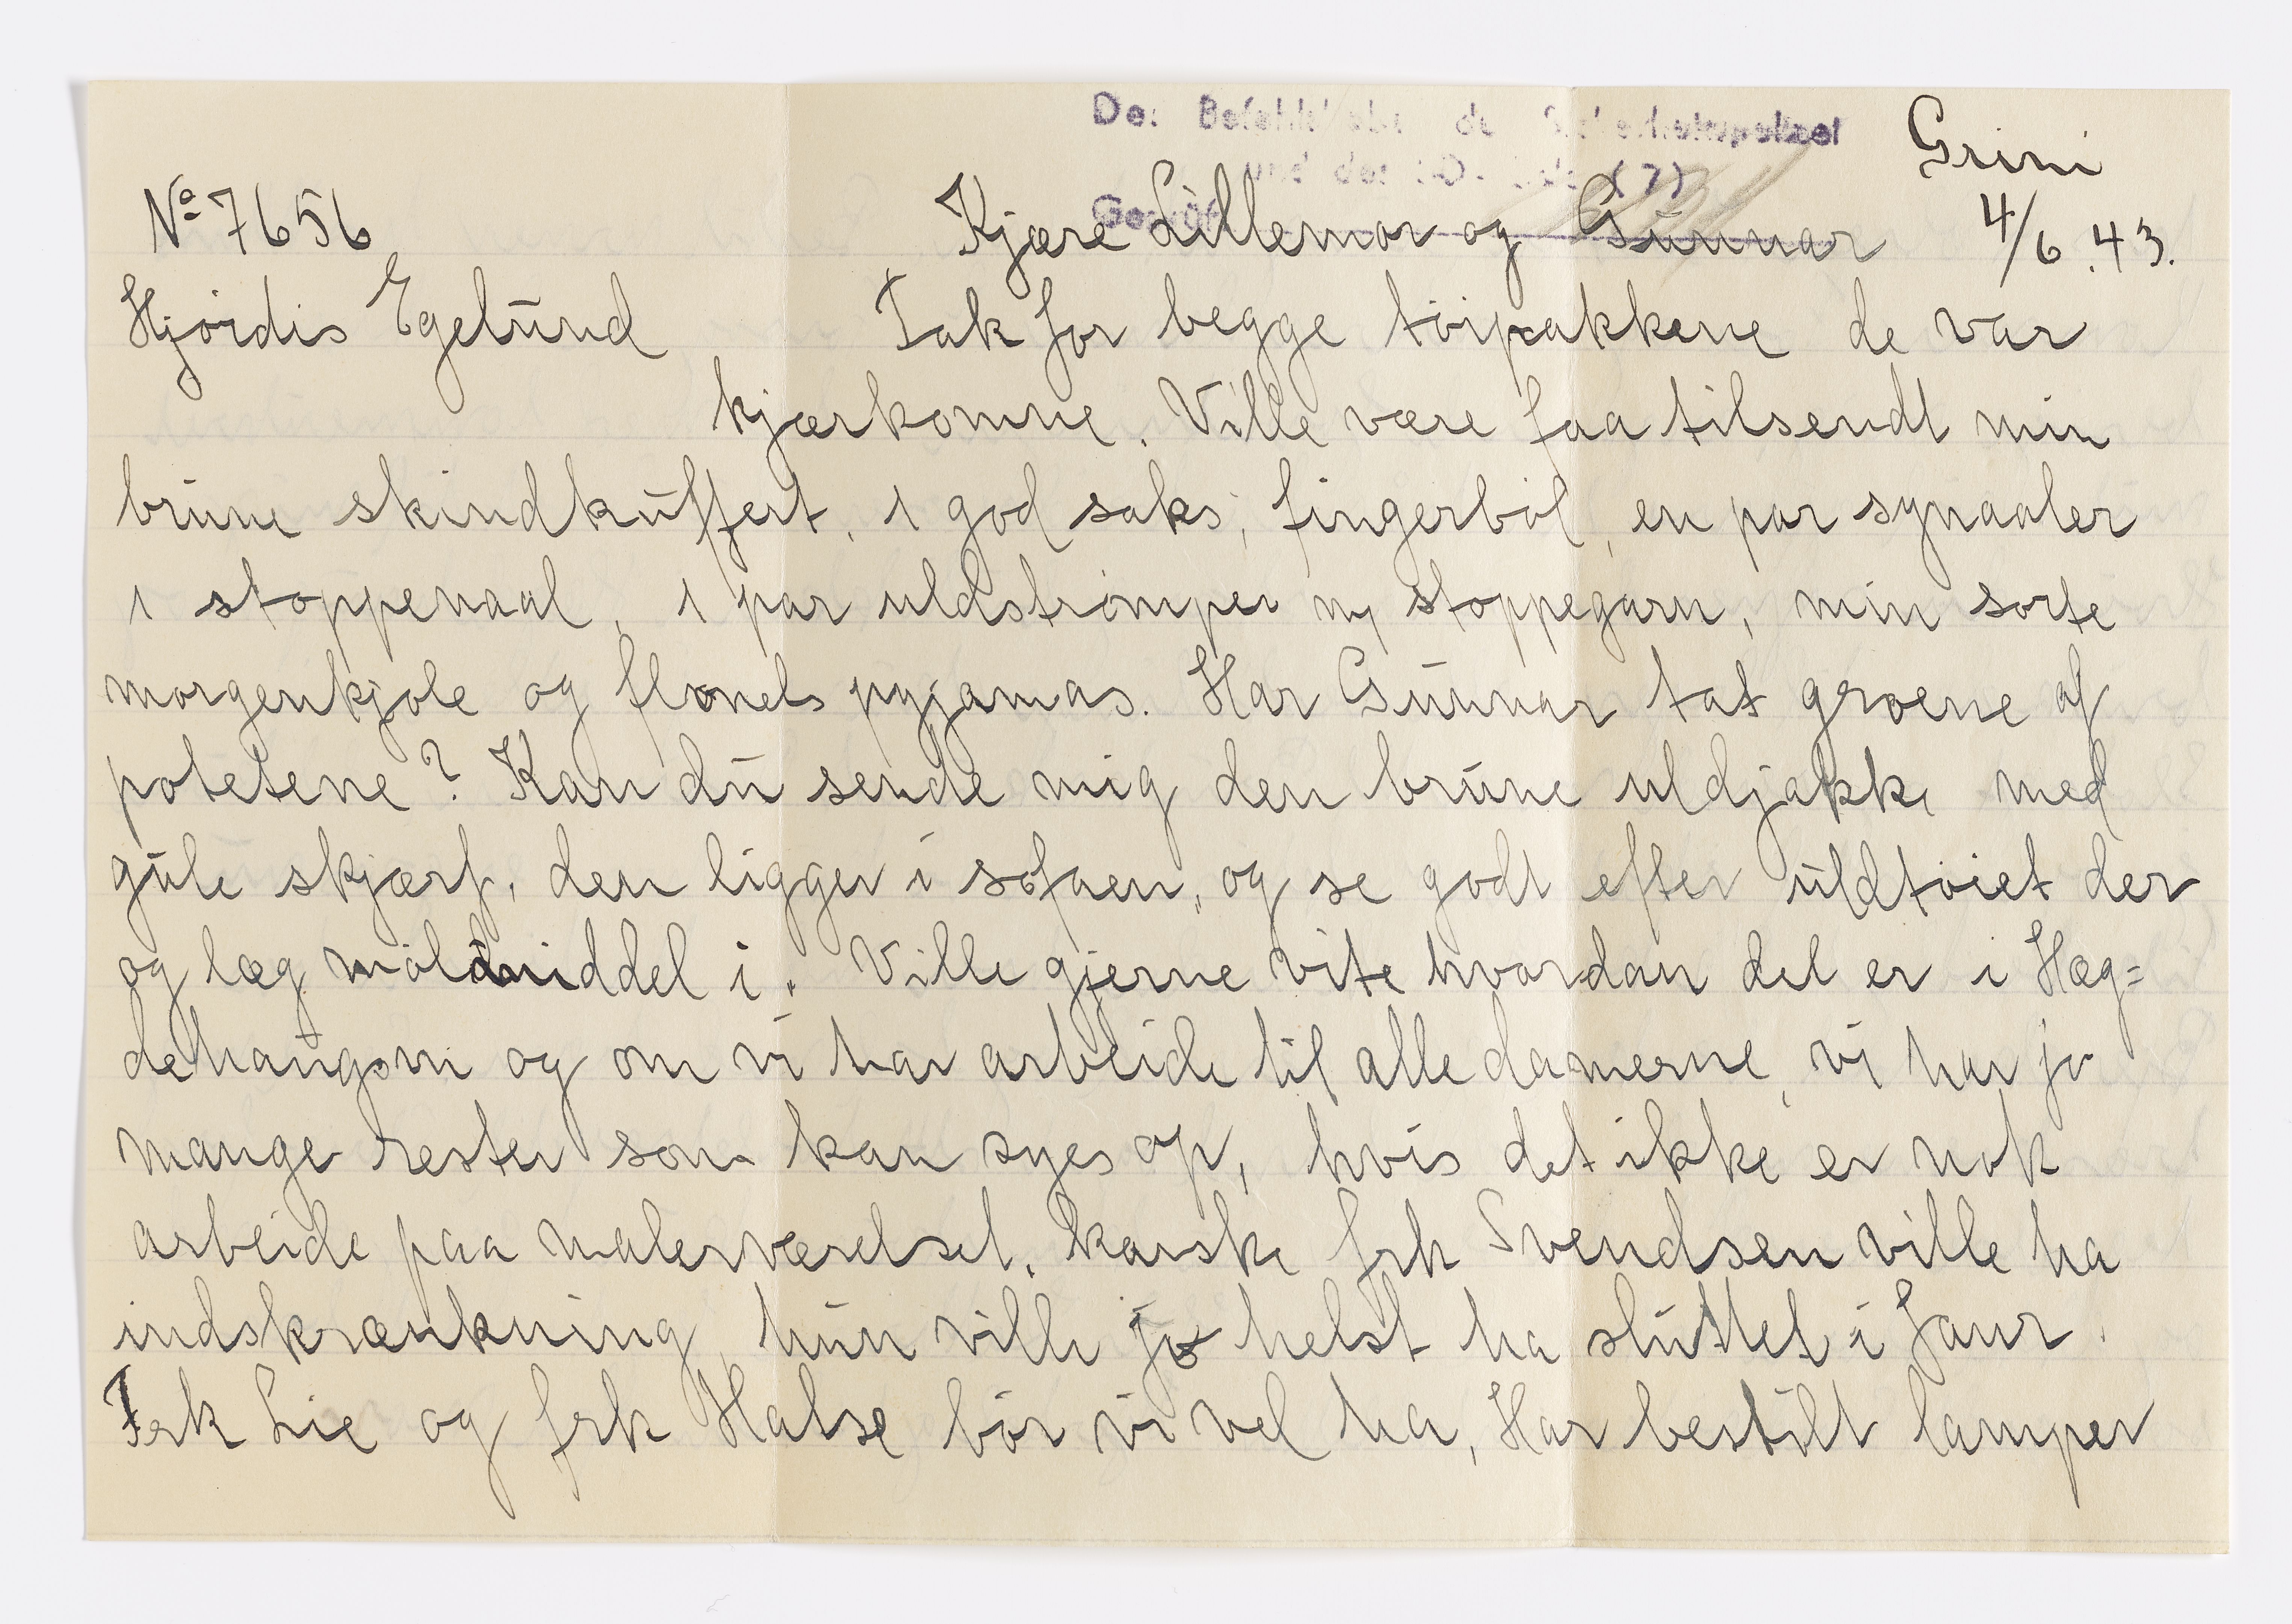 Der Befehlshaber der Sicherheitspolizei
und des SD (7)
Geprüft
Grini
4/6.43.
Nº 7656
Hjördis Egelund
Kjære Lillemor og Gunnar
Tak for begge töipakkene de var
kjærkomne. Ville være faa tilsendt min
brune skindkuffert, 1 god saks, fingerböl, en par synaaler
1 stoppenaal, 1 par uldströmper og stoppegarn, min sorte
morgenkjole og flonels pyjamas. Har Gunnar tat groene af
potetene? Kan du sende mig den brune uldjakke med
gule skjærf, den ligger i sofaen, og se godt efter uldtöiet der
og læg mölmiddel i. Ville gjerne vite hvordan det er i Hæg=
dehaugsvn og om vi har arbeide til alle damerne, vi har jo
mange rester som kan syes op, hvis det ikke er nok
arbeide paa malerværelset. kanske frk Svendsen ville ha
indskrænkning, hun ville jo helst ha sluttet i Janr.
Frk Lie og frk Halse bör vi vel ha, Har bestilt lamper